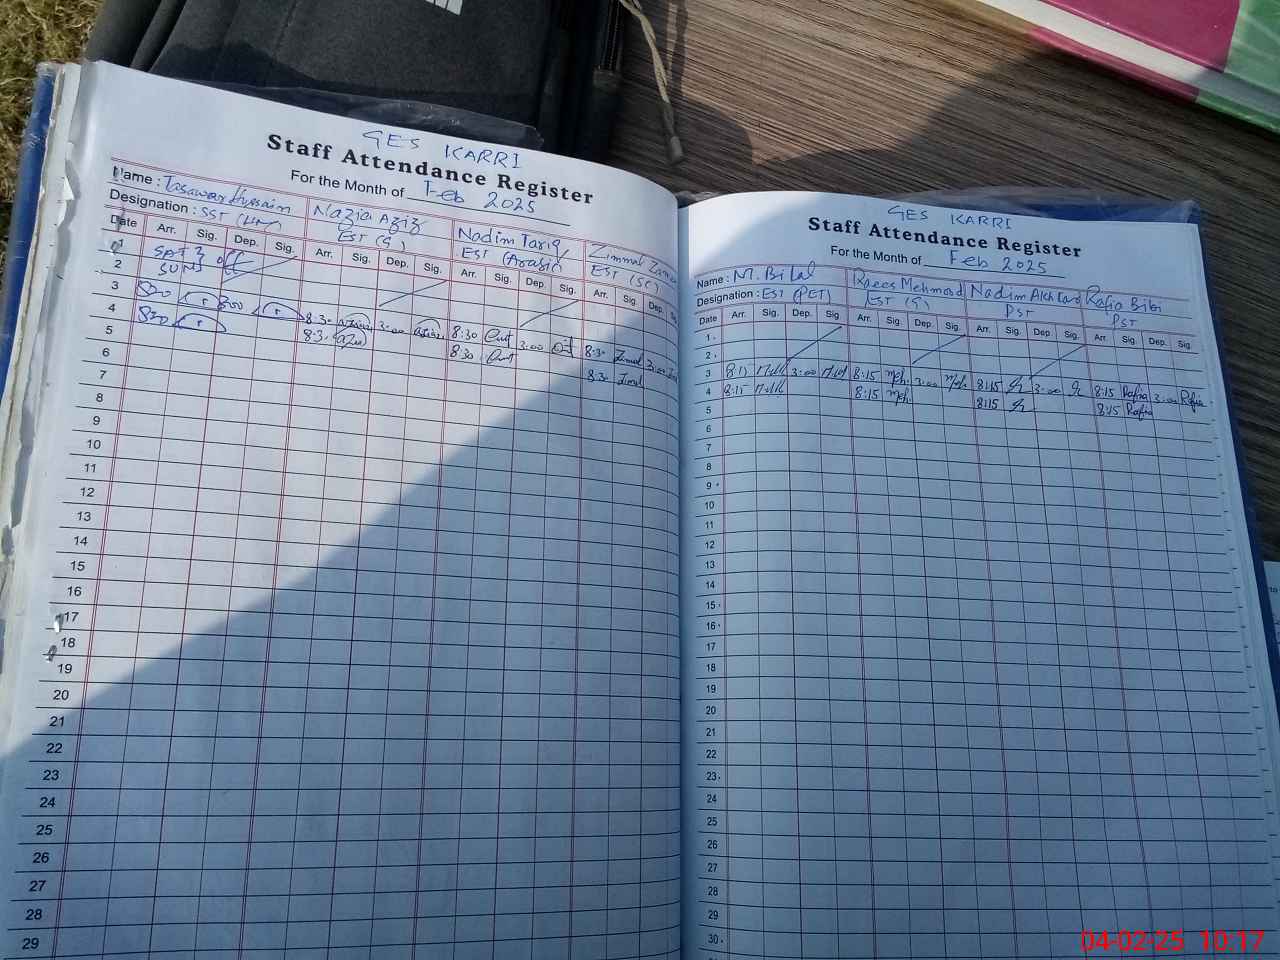 GES KARRI
Staff Attendance Register
For the Month of Feb 2025
Name : Tasawar Hussain Nazia Aziz Nadim Tariq Zimmal
Designation : SST EST (S) EST (Arabic) EST (SC)
Date Arr. Sig. Dep. Sig. Arr. Sig. Dep. Sig. Arr. Sig. Dep. Sig. Arr. Sig. Dep.
1 SAT } off
2 SUN
3 8:30 3:00 8:30 3:00 8:30 3:00
4 8:30 8:30 8:30
5
6
7
8
9
10
11
12
13
14
15
16
17
18
19
20
21
22
23
24
25
26
27
28
29
GES KARRI
Staff Attendance Register
For the Month of Feb 2025
Name : M. Bilal Raees Mehmood Nadim Akhtar Rafia Bibi
Designation : EST (PET) EST (S) PST PST
Date Arr. Sig. Dep. Sig. Arr. Sig. Dep. Sig. Arr. Sig. Dep. Sig. Arr. Sig. Dep. Sig.
1
2
3 8:15 3:00 8:15 3:00 8:15 3:00 8:15 Rafia 3:00 Rafia
4 8:15 8:15 8:15 8:15 Rafia
5
6
7
8
9
10
11
12
13
14
15
16
17
18
19
20
21
22
23
24
25
26
27
28
29
30
04-02-25 10:17